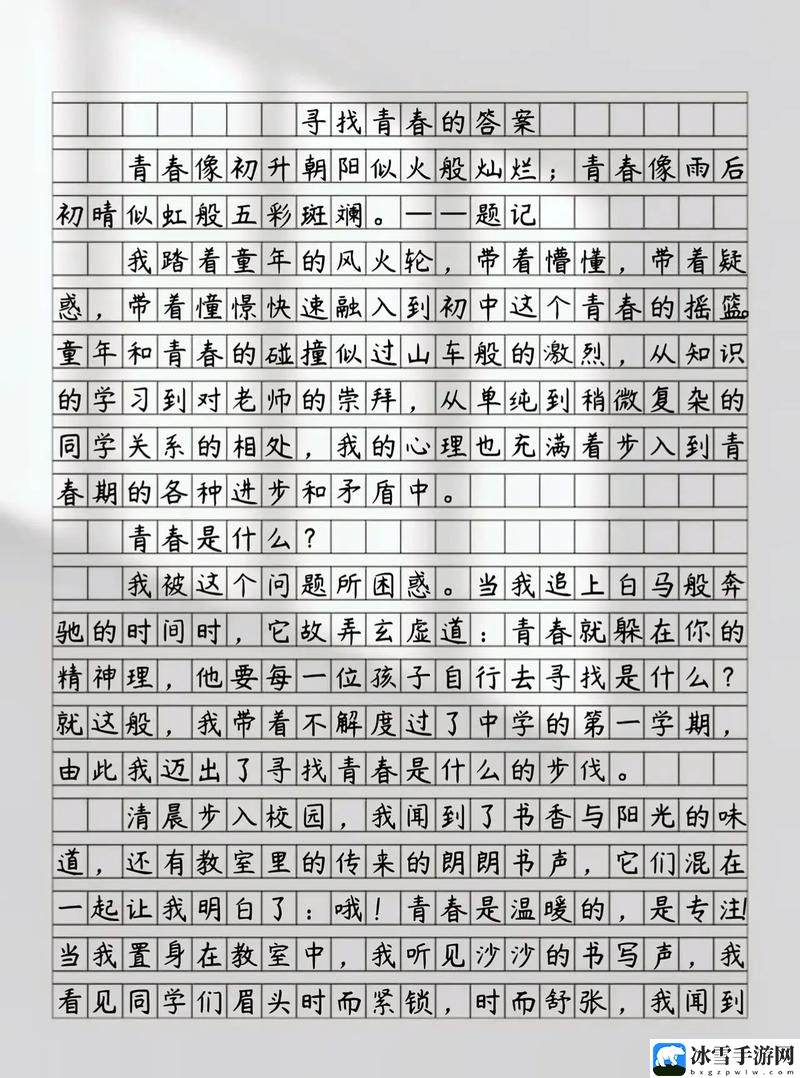 寻找青春的答案
青春像初升朝阳似火般灿烂；青春像雨后
初晴似虹般五彩斑斓。——题记
我踏着童年的风火轮，带着懵懂，带着疑
惑，带着憧憬快速融入到初中这个青春的摇篮。
童年和青春的碰撞似过山车般的激烈，从知识
的学习到对老师的崇拜，从单纯到稍微复杂的
同学关系的相处，我的心理也充满着步入到青
春期的各种进步和矛盾中。
青春是什么？
我被这个问题所困惑。当我追上白马般奔
驰的时间时，它故弄玄虚道：青春就躲在你的
精神理，他要每一位孩子自行去寻找是什么？
就这般，我带着不解度过了中学的第一学期，
由此我迈出了寻找青春是什么的步伐。
清晨步入校园，我闻到了书香与阳光的味
道，还有教室里的传来的朗朗书声，它们混在
一起让我明白了：哦！青春是温暖的，是专注！
当我置身在教室中，我听见沙沙的书写声，我
看见同学们眉头时而紧锁，时而舒张，我闻到
冰雪手游网
bxgzpwlw.com